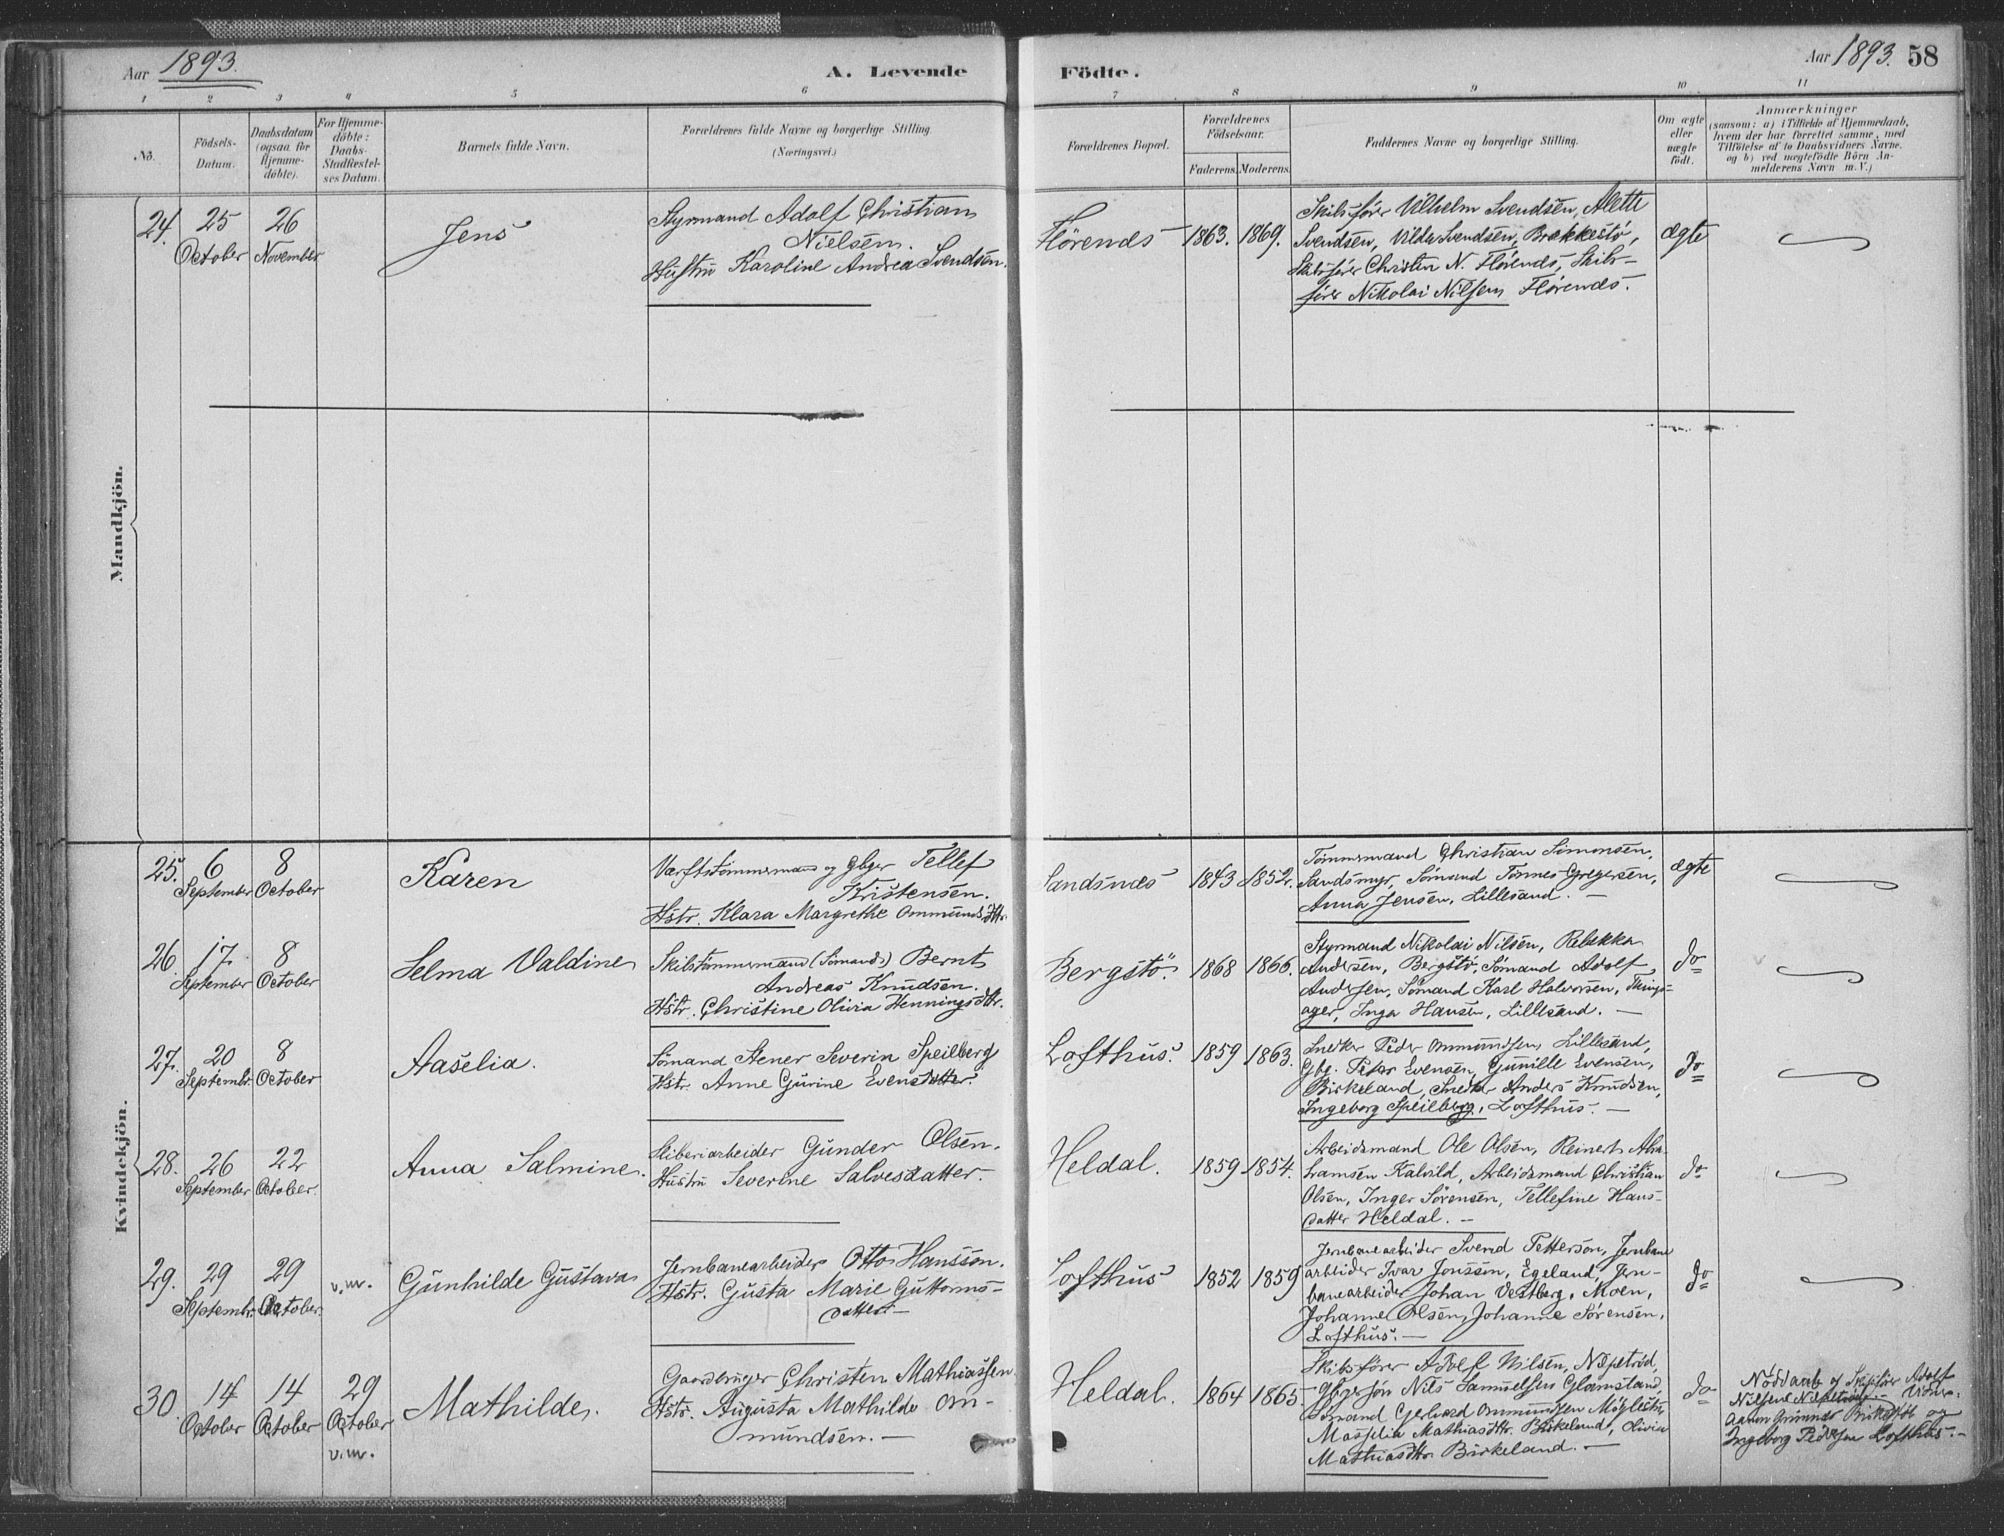 Aar 1893.
A. Levende
Födte.
Aar 1893. 58
1 2 3 4 5 6 7 8 9 10 11
No.
Födsels-
Datum.
Daabsdatum
(ogsaa for
Hjemme-
döbte).
For Hjemme-
döbte:
Daabs-
Stadfæstel-
ses Datum.
Barnets fulde Navn.
Forældrenes fulde Navne og borgerlige Stilling.
(Næringsvei.)
Forældrenes Bopæl.
Forældrenes
Födselsaar.
Faderens. Moderens.
Faddernes Navne og borgerlige Stilling.
Om ægte
eller
uægte
födt.
Anmærkninger
(saasom: a) i Tilfælde af Hjemmedaab,
hvem der har forrettet samme, med
Tilföielse af to Daabsvidners Navne.
og b) ved uægtefödte Börn An-
melderens Navn m. V.)
Mandkjön.
24. 25 October 26 November
Jens
Styrmand Adolf Christian
Nielsen.
Hustru Karoline Andrea Svendsen.
Flörends 1863. 1869.
Skibsförer Vilhelm Svendsen, Alette
Svendsen, Vilda Svendsen, Brækkestö,
Skibsförer Christen N. Flörends, Skibs-
förer Nikolai Nilsen Flörends.
ægte
Kvindekjön.
25. 6 September 8 October
Karen
Værftstömmermand og Gbger Tellef
Kristensen.
Hstr. Klara Margrethe Ommundsdtr.
Sandsnæs 1843 1852.
Tömmermand Christian Simonsen,
Sandsmyr, Sömand Tönnes Gregersen,
Anna Jensen, Lillesand. —
ægte
26 17 September 8 October
Selma Valdine
Skibstömmermand (Sömand) Bernt
Andreas Knudsen.
Hstr. Christine Olivia Henningsdtr.
Bergstö. 1868 1866.
Styrmand Nikolai Nilsen, Rebekka
Andersen, Bergstö, Sömand Adolf
Andersen, Sömand Karl Halvorsen, Tings-
ager, Inga Hansen, Lillesand. —
do
27. 20 Septembr. 8 October
Aaselia.
Sömand Stener Severin Speilberg
Hstr. Anne Gurine Evensdatter.
Lofthus. 1859 1863.
Snedker Peder Ommundsen Lillesand,
Gbg. Peder Evensen, Gunille Evensen,
Birkeland, Snedker Anders Knudsen,
Ingeborg Speilberg, Lofthus. —
do
28. 26 September 22 October.
Anna Salmine.
Sliberiarbeider Gunder Olsen.
Hustru Severine Salvesdatter.
Heldal. 1859 1854.
Arbeidsmand Ole Olsen, Reinert Abra-
hamsen Kalvild, Arbeidsmand Christian
Olsen, Inger Sörensen, Tellefine Hans-
datter Heldal. —
do
29. 29 Septembr. 29 October v.m.
Gunhilde Gustava
Jernbanearbeider Otto Hansson.
Hstr. Gusta Marie Guttorms-
datter. —
Lofthus 1852 1859
Jernbanearbeider Svend Petterson, Jernbane
arbeider Ivar Jonssen, Egeland, Jern-
banearbeider Johan Vestberg, Moen,
Johanne Olsen, Johanne Sörensen,
Lofthus. —
do
30. 14 October 14 October 29 October v.m.
Mathilde.
Gaardbruger Christen Mathiassen
Hstr. Augusta Mathilde Om-
mundsen. —
Heldal. 1864 1865
Skibsförer Adolf Nilsen, Næpetrød,
Gbgersön Nils Samuelsen Glamsland,
Sömand Gerhard Ommundsen Möglestu
Mathiasdtr. Birkeland, Olivia
Mathiasdtr Birkeland. —
do
Nöddaab af Skibsförer Adolf
Nilsen Næpetrød. — Vidner:
Aanon Gunnar og
Ingeborg Pedersen Lofthus. —